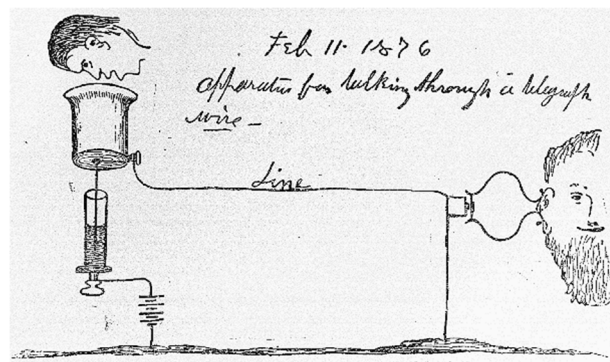 Feb 11. 1876
apparatus for talking through a telegraph
wire –
Line